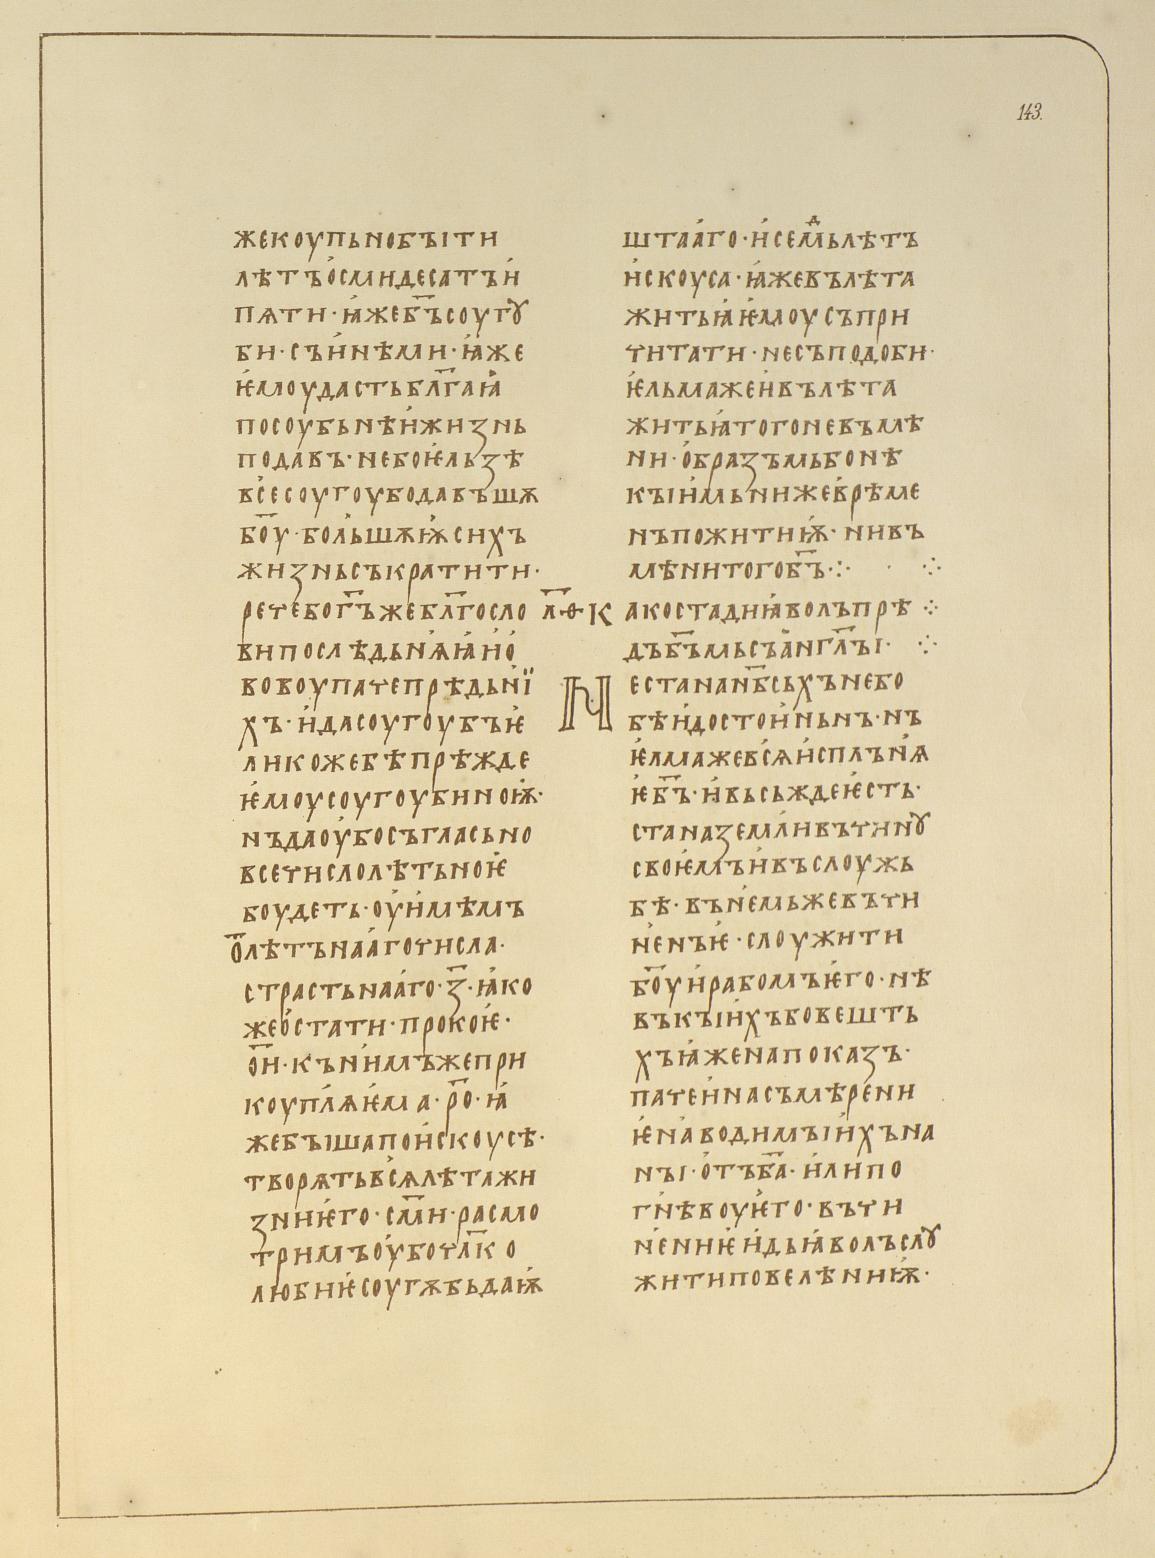 143.
жекоупьнобꙑти
лѣтъосмидесатъи
пѧти·ꙗжеб҃ъсоугꙋ
би·съинѣми·ꙗже
ѥмоудастьбл҃гаꙗ
посоубьнѣижизнь
подавъ·небоѥльзѣ
всесоугоубодавъшѫ
б҃оу·большѫѭсихъ
жизньсъкратити·
речебог҃ъжебл҃госло
випослѣдьнѧꙗио
вовоупачепрѣдьнї
хъ·идасоугоубъѥ
ликожебѣпрѣжде
ѥмоусоугоубиноѭ·
нъдаоубосъгласьно
всечислолѣтьноѥ
боудеть·оуимѣмъ
о҃лѣтънаагочисла·
страстьнааго·з҃·ꙗко
жеостати·прокоѥ·
о҃и·кънимъжепри
коуплѧѥма·р҃о·ꙗ
жебꙑшапоискоусѣ·
творѧтьвсѧлѣтажи
зниѥго·см҃и·расмо
тримъоубочл҃ко
любиѥсоугѫбьдаѭ
штааго·исемⷣьлѣтъ
искоуса·ꙗжевълѣта
житьꙗѥмоусъпри
читати·несъподоби·
ѥльмажеивълѣта
житьꙗтогоневъмѣ
ни·образъмьбонѣ
кꙑимьнижеврѣме
нъпожитиѭ·нивъ
мѣнитогоб҃ъ·:·
л҃ѳ
какостадиꙗволъпрѣ
дъб҃ъмьсъанг҃лꙑ·
Нестананб҃сьхънебо
бѣидостоиньнъ·нъ
ѥлмажевсѧисплънѧ
ѥб҃ъ·ивьсьждеѥсть·
станаземливъчинꙋ
своѥмъивъслоужь
бѣ·вънемьжевъчи
ненъѥ·слоужити
б҃оуирабомъѥго·нѣ
въкꙑихъбовешть
хъꙗженапоказъ·
пачеинасъмѣрени
ѥнаводимꙑихъна
нꙑ·отъб҃а·илипо
гнѣвоуѥго·въчи
нениѥидьꙗволъслꙋ
житиповелѣниѭ·